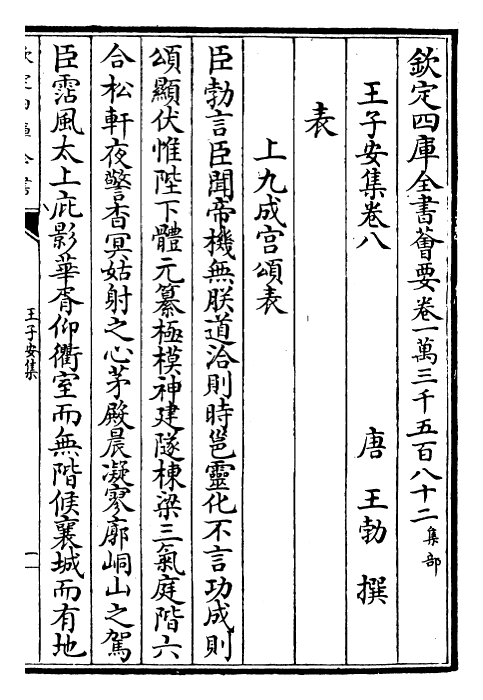 欽定四庫全書薈要卷一萬三千五百八十二集部
王子安集卷八 唐 王勃 撰
表
上九成宫頌表
臣勃言臣聞帝機無朕道洽則時邕靈化不言功成則
頌顯伏惟陛下體元纂極模神建隧棟梁三氣庭階六
合松軒夜警杳冥姑射之心茅殿晨凝寥廓峒山之駕
臣霑風太上庇影華胥仰衢室而無階候襄城而有地
欽定四庫全書
王子安集
一